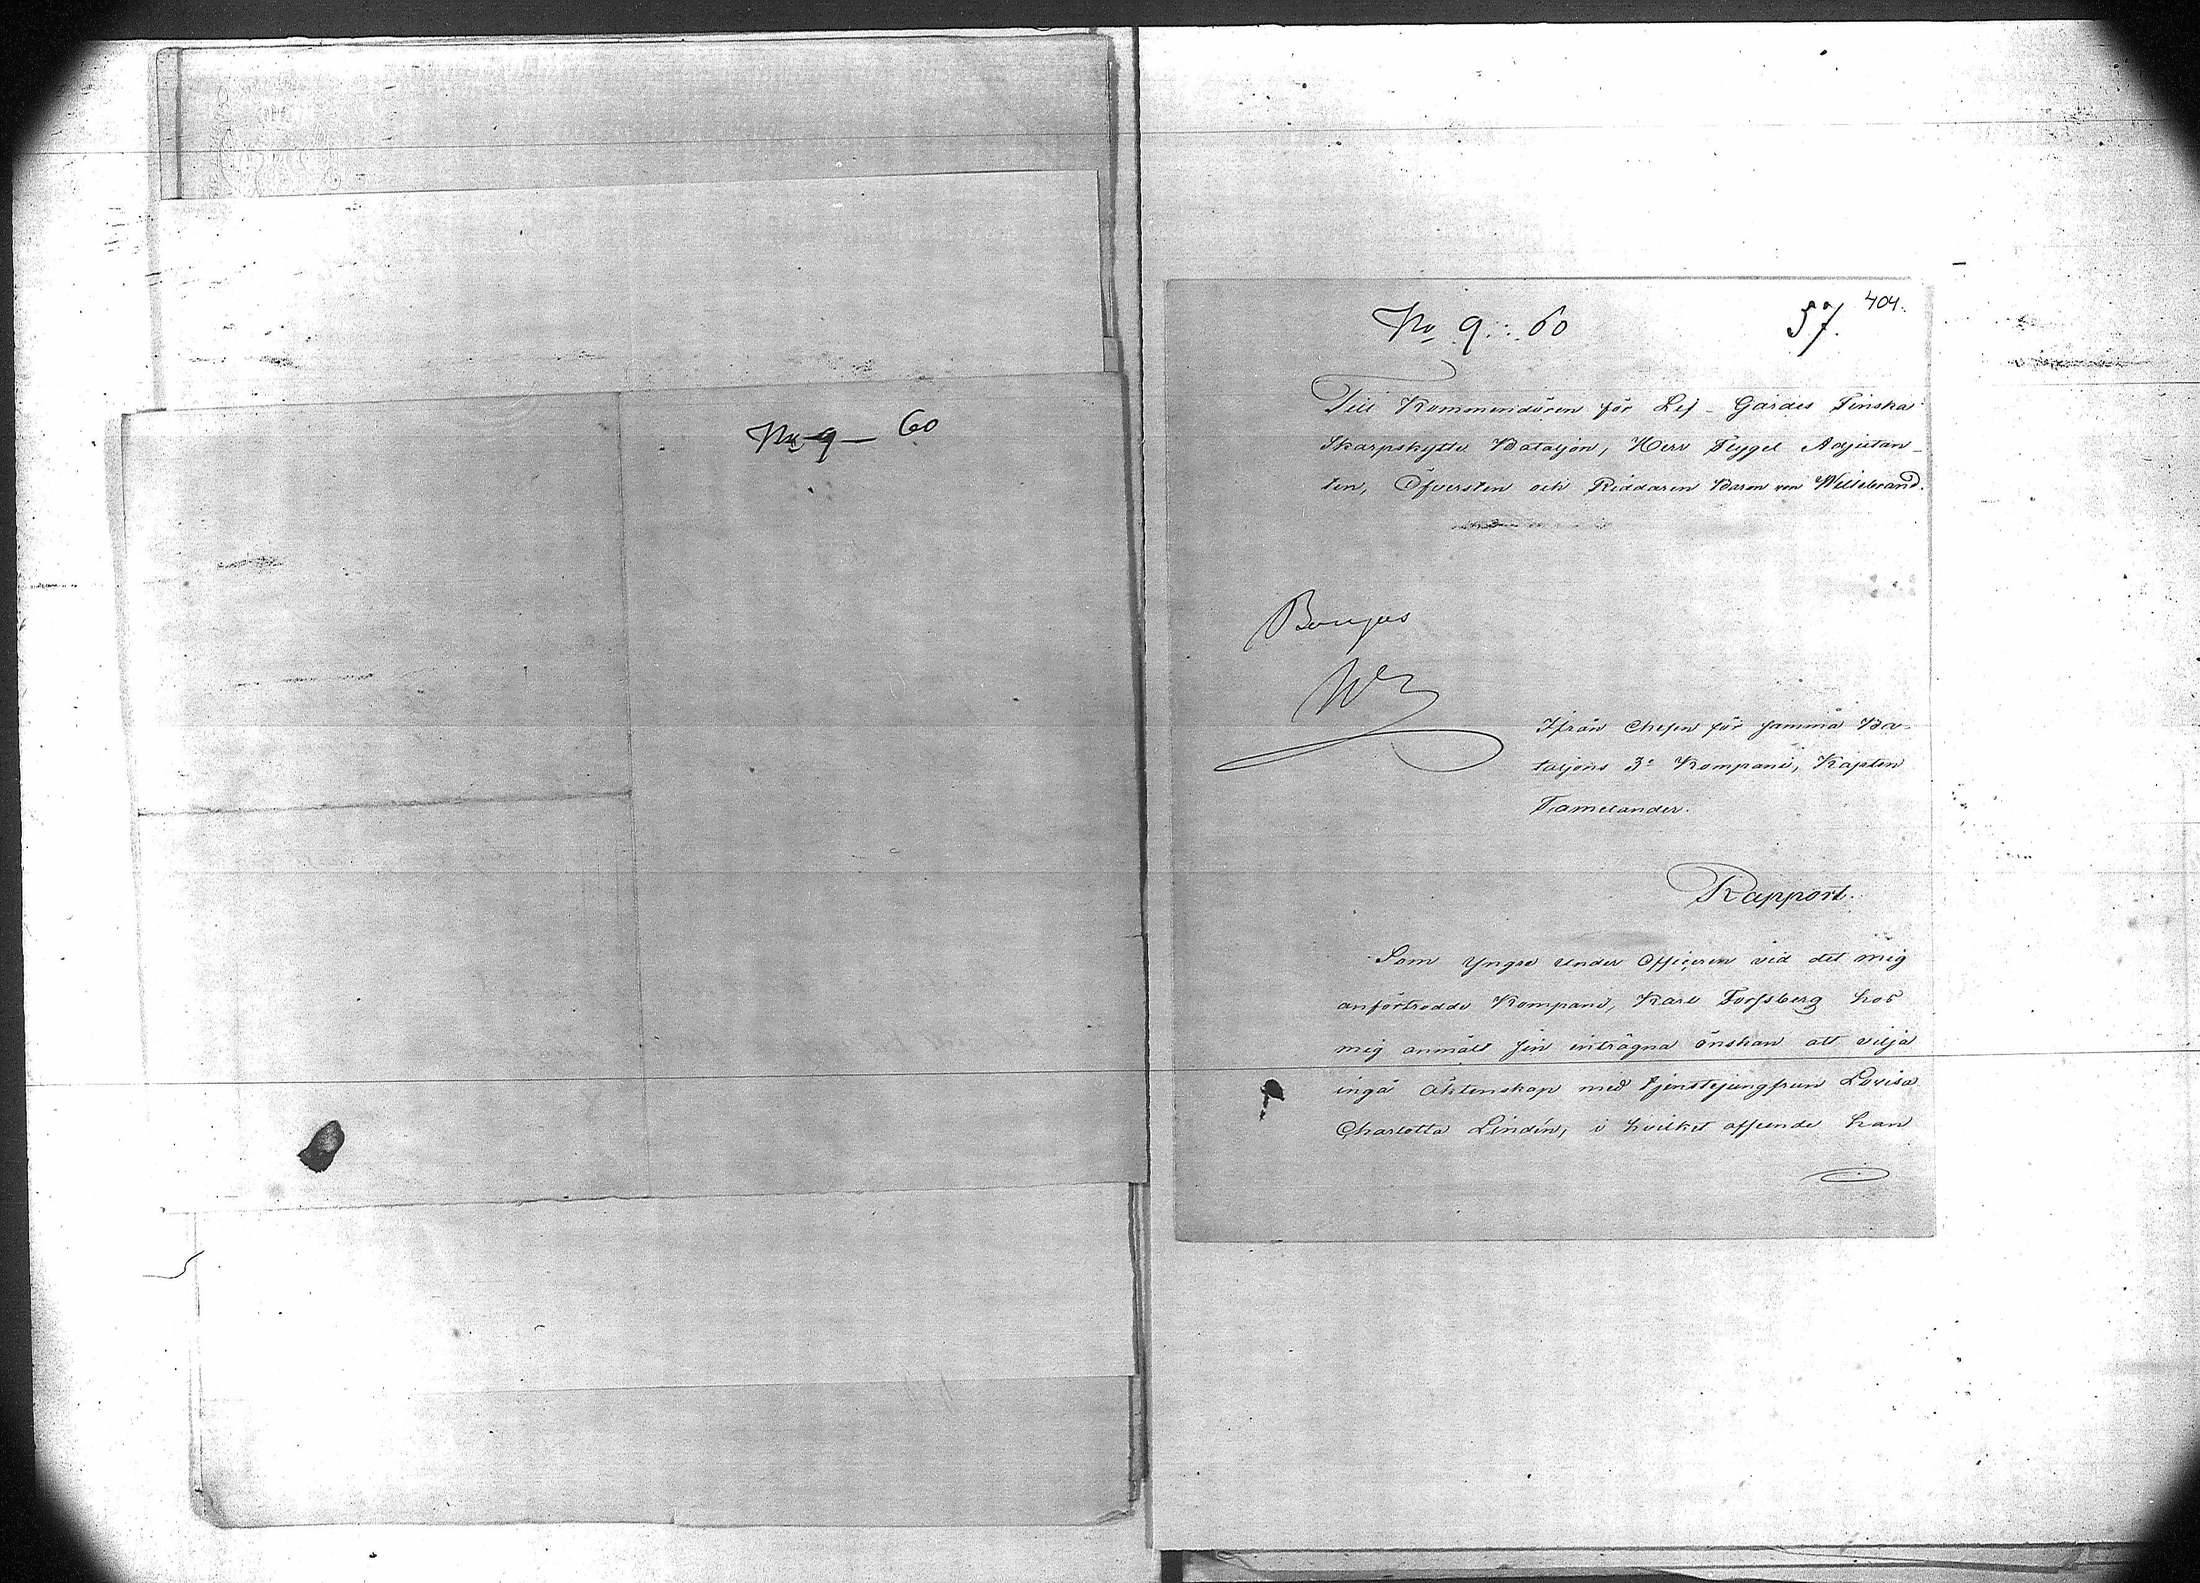 No 9 — 60
No 9 : 60
57.
404.
Till Kommendören för Lif-Gardes Finska
Skarpskytte Bataljon, Herr Flygel Adjutan-
ten, Öfversten och Riddaren Baron von Willebrand.
Beviljas
Ifrån Chefen för samma Ba-
taljons 3e Kompani, Kapten
Tamelander.
Rapport.
Som Yngre Under Officeren vid det mig
anförtrodde Kompani, Karl Forssberg hos
mig anmält sin inträgna önskan att vilja
ingå äktenskap med tjenstejungfrun Lovisa
Charlotta Lindén, i hvilket afseende han